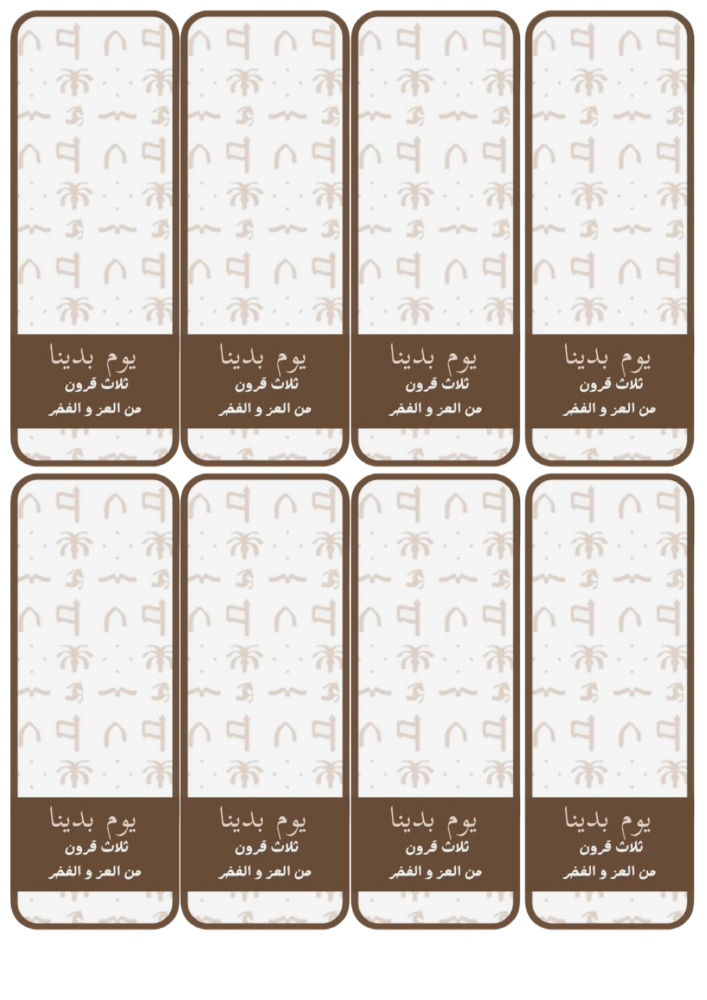 يوم بدينا
ثلاث قرون
من العز و الفخر
يوم بدينا
ثلاث قرون
من العز و الفخر
يوم بدينا
ثلاث قرون
من العز و الفخر
يوم بدينا
ثلاث قرون
من العز و الفخر
يوم بدينا
ثلاث قرون
من العز و الفخر
يوم بدينا
ثلاث قرون
من العز و الفخر
يوم بدينا
ثلاث قرون
من العز و الفخر
يوم بدينا
ثلاث قرون
من العز و الفخر